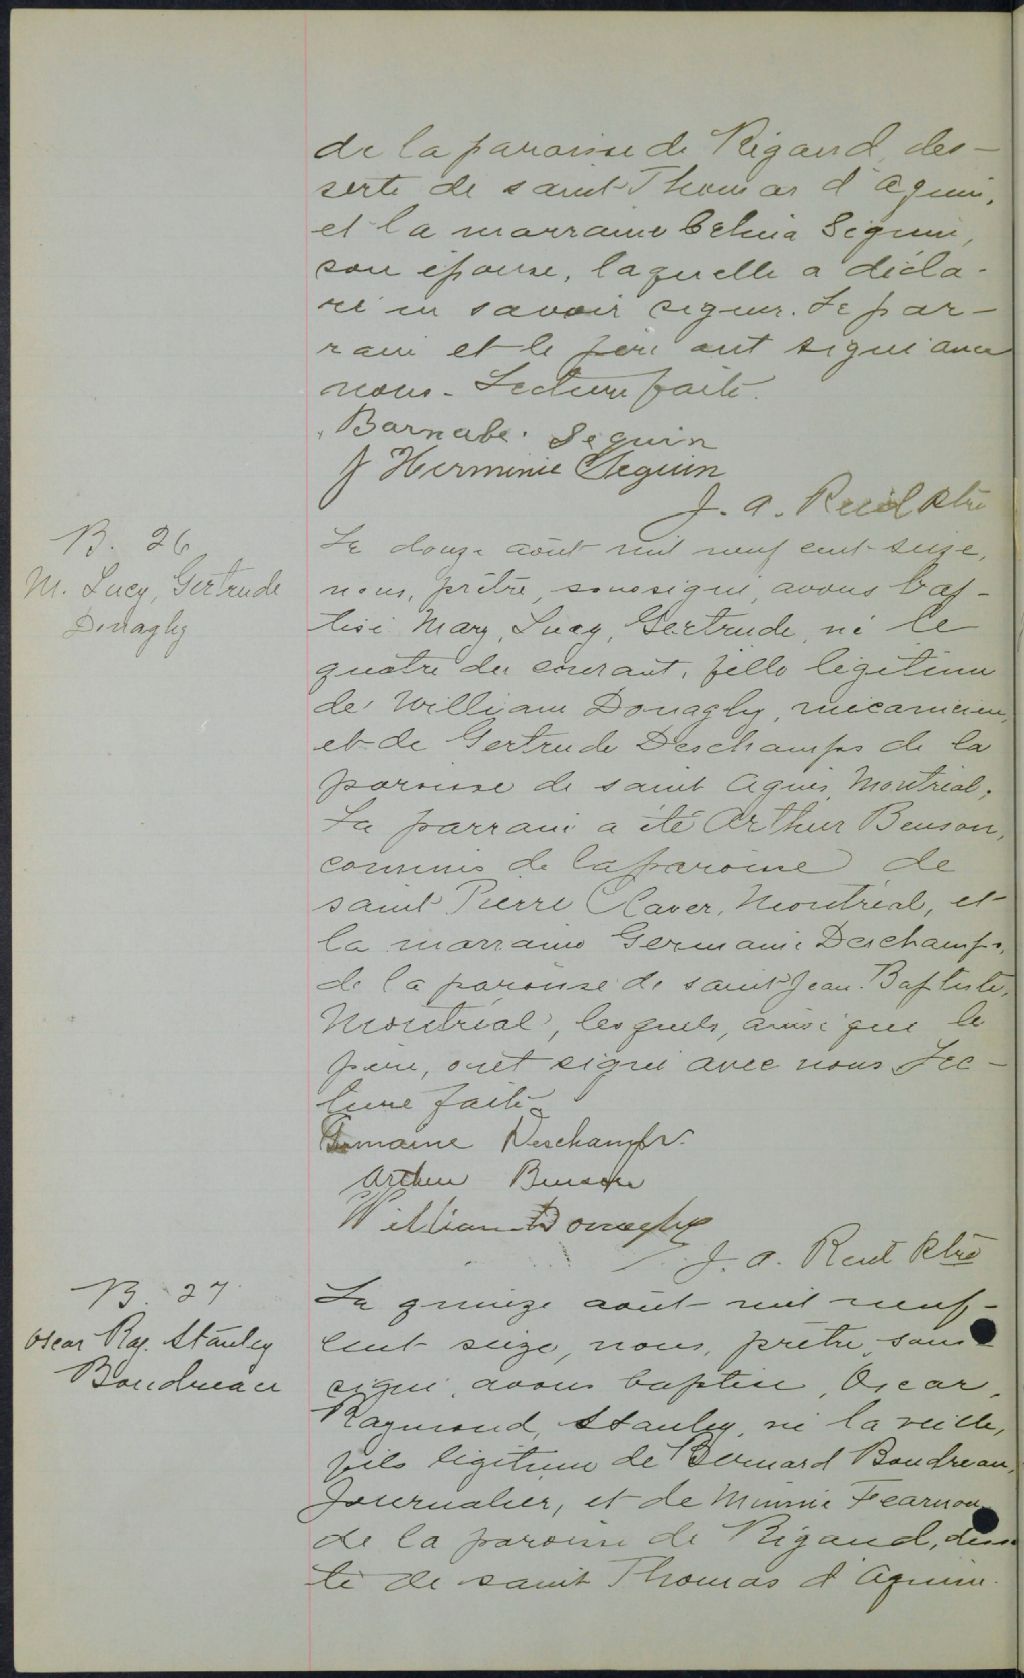 de la paroisse de Rigaud, des-
serte de saint Thomas d'Aquin,
et la marraine Celina Seguin,
son épouse, laquelle a décla-
ré ne savoir signer. Le par-
rain et le père ont signé avec
nous. Lecture faite.
Barnabé. Seguin
J Herminie Seguin
J. A. ptre
B. 26
M. Lucy, Gertrude
Donaghy
Le douze août mil neuf cent-seize,
nous, prêtre, soussigné, avons bap-
tisé Mary, Lucy, Gertrude, né le
quatre du courant, fille légitime
de William Donaghy, mécanicien,
et de Gertrude Deschamps de la
paroisse de saint Agnès, Montréal.
Le parrain a été Arthur Benson,
commis de la paroisse de
saint Pierre Claver, Montréal, et
la marraine Germaine Deschamps,
de la paroisse de saint Jean-Baptiste,
Montréal, lesquels, ainsi que le
père, ont signé avec nous. Lec-
ture faite.
Germaine Deschamps.
Arthur Benson
William Donaghy
J. A. ptre
B. 27
Oscar Ray. Stanley
Boudreau
Le quinze août mil neuf-
cent seize, nous, prêtre, sous-
signé, avons baptisé, Oscar,
Raymond, Stanley, né la veille,
fils légitime de Bernard Boudreau,
Journalier, et de Minnie Fearnon
de la paroisse de Rigaud, desser
te de saint Thomas d'Aquin.